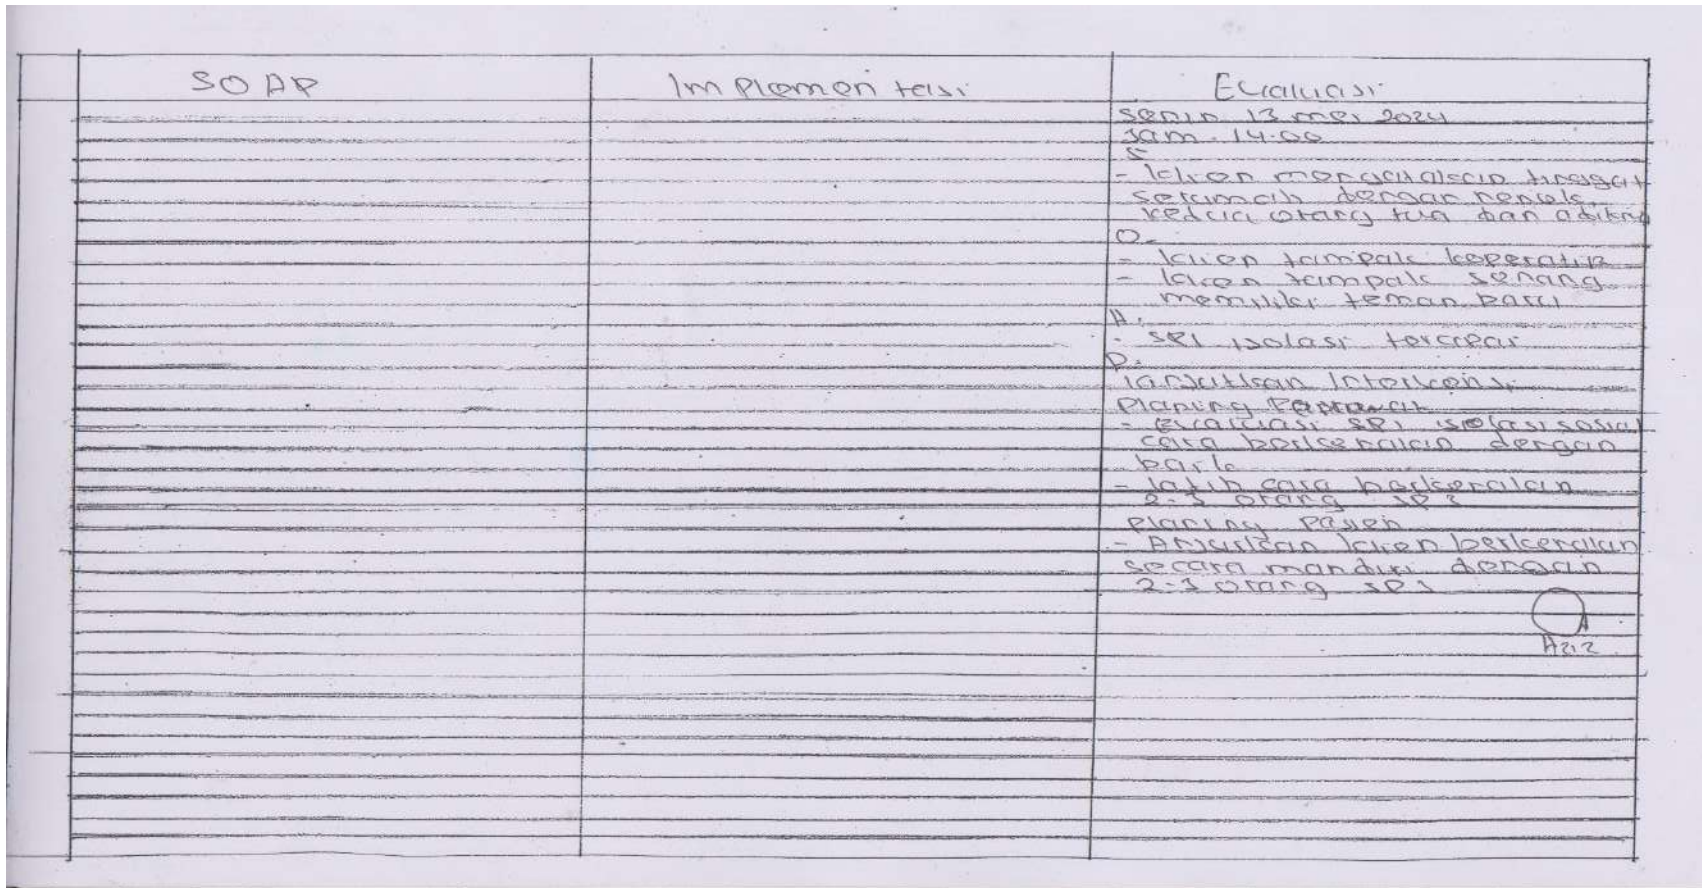 SOAP
Implementasi
Evaluasi
Senin 13 mei 2024
Jam. 14.00
S
- klien mengatakan tinggat
serumah dengan nenek,
kedua orang tua dan adikny
O.
- klien tampak koperatif
- klien tampak senang
memiliki teman baru
A.
- SP1 isolasi tercapai
P.
lanjutkan Intervensi
Planing Perawat
- Evaluasi SP1 isolasi sosial
cara berkenalan dengan
baik
- latih cara berkenalan
2-3 orang SP3
Planing Pasien
- Anjurkan klien berkenalan
secara mandiri dengan
2-3 orang SP3
Aziz